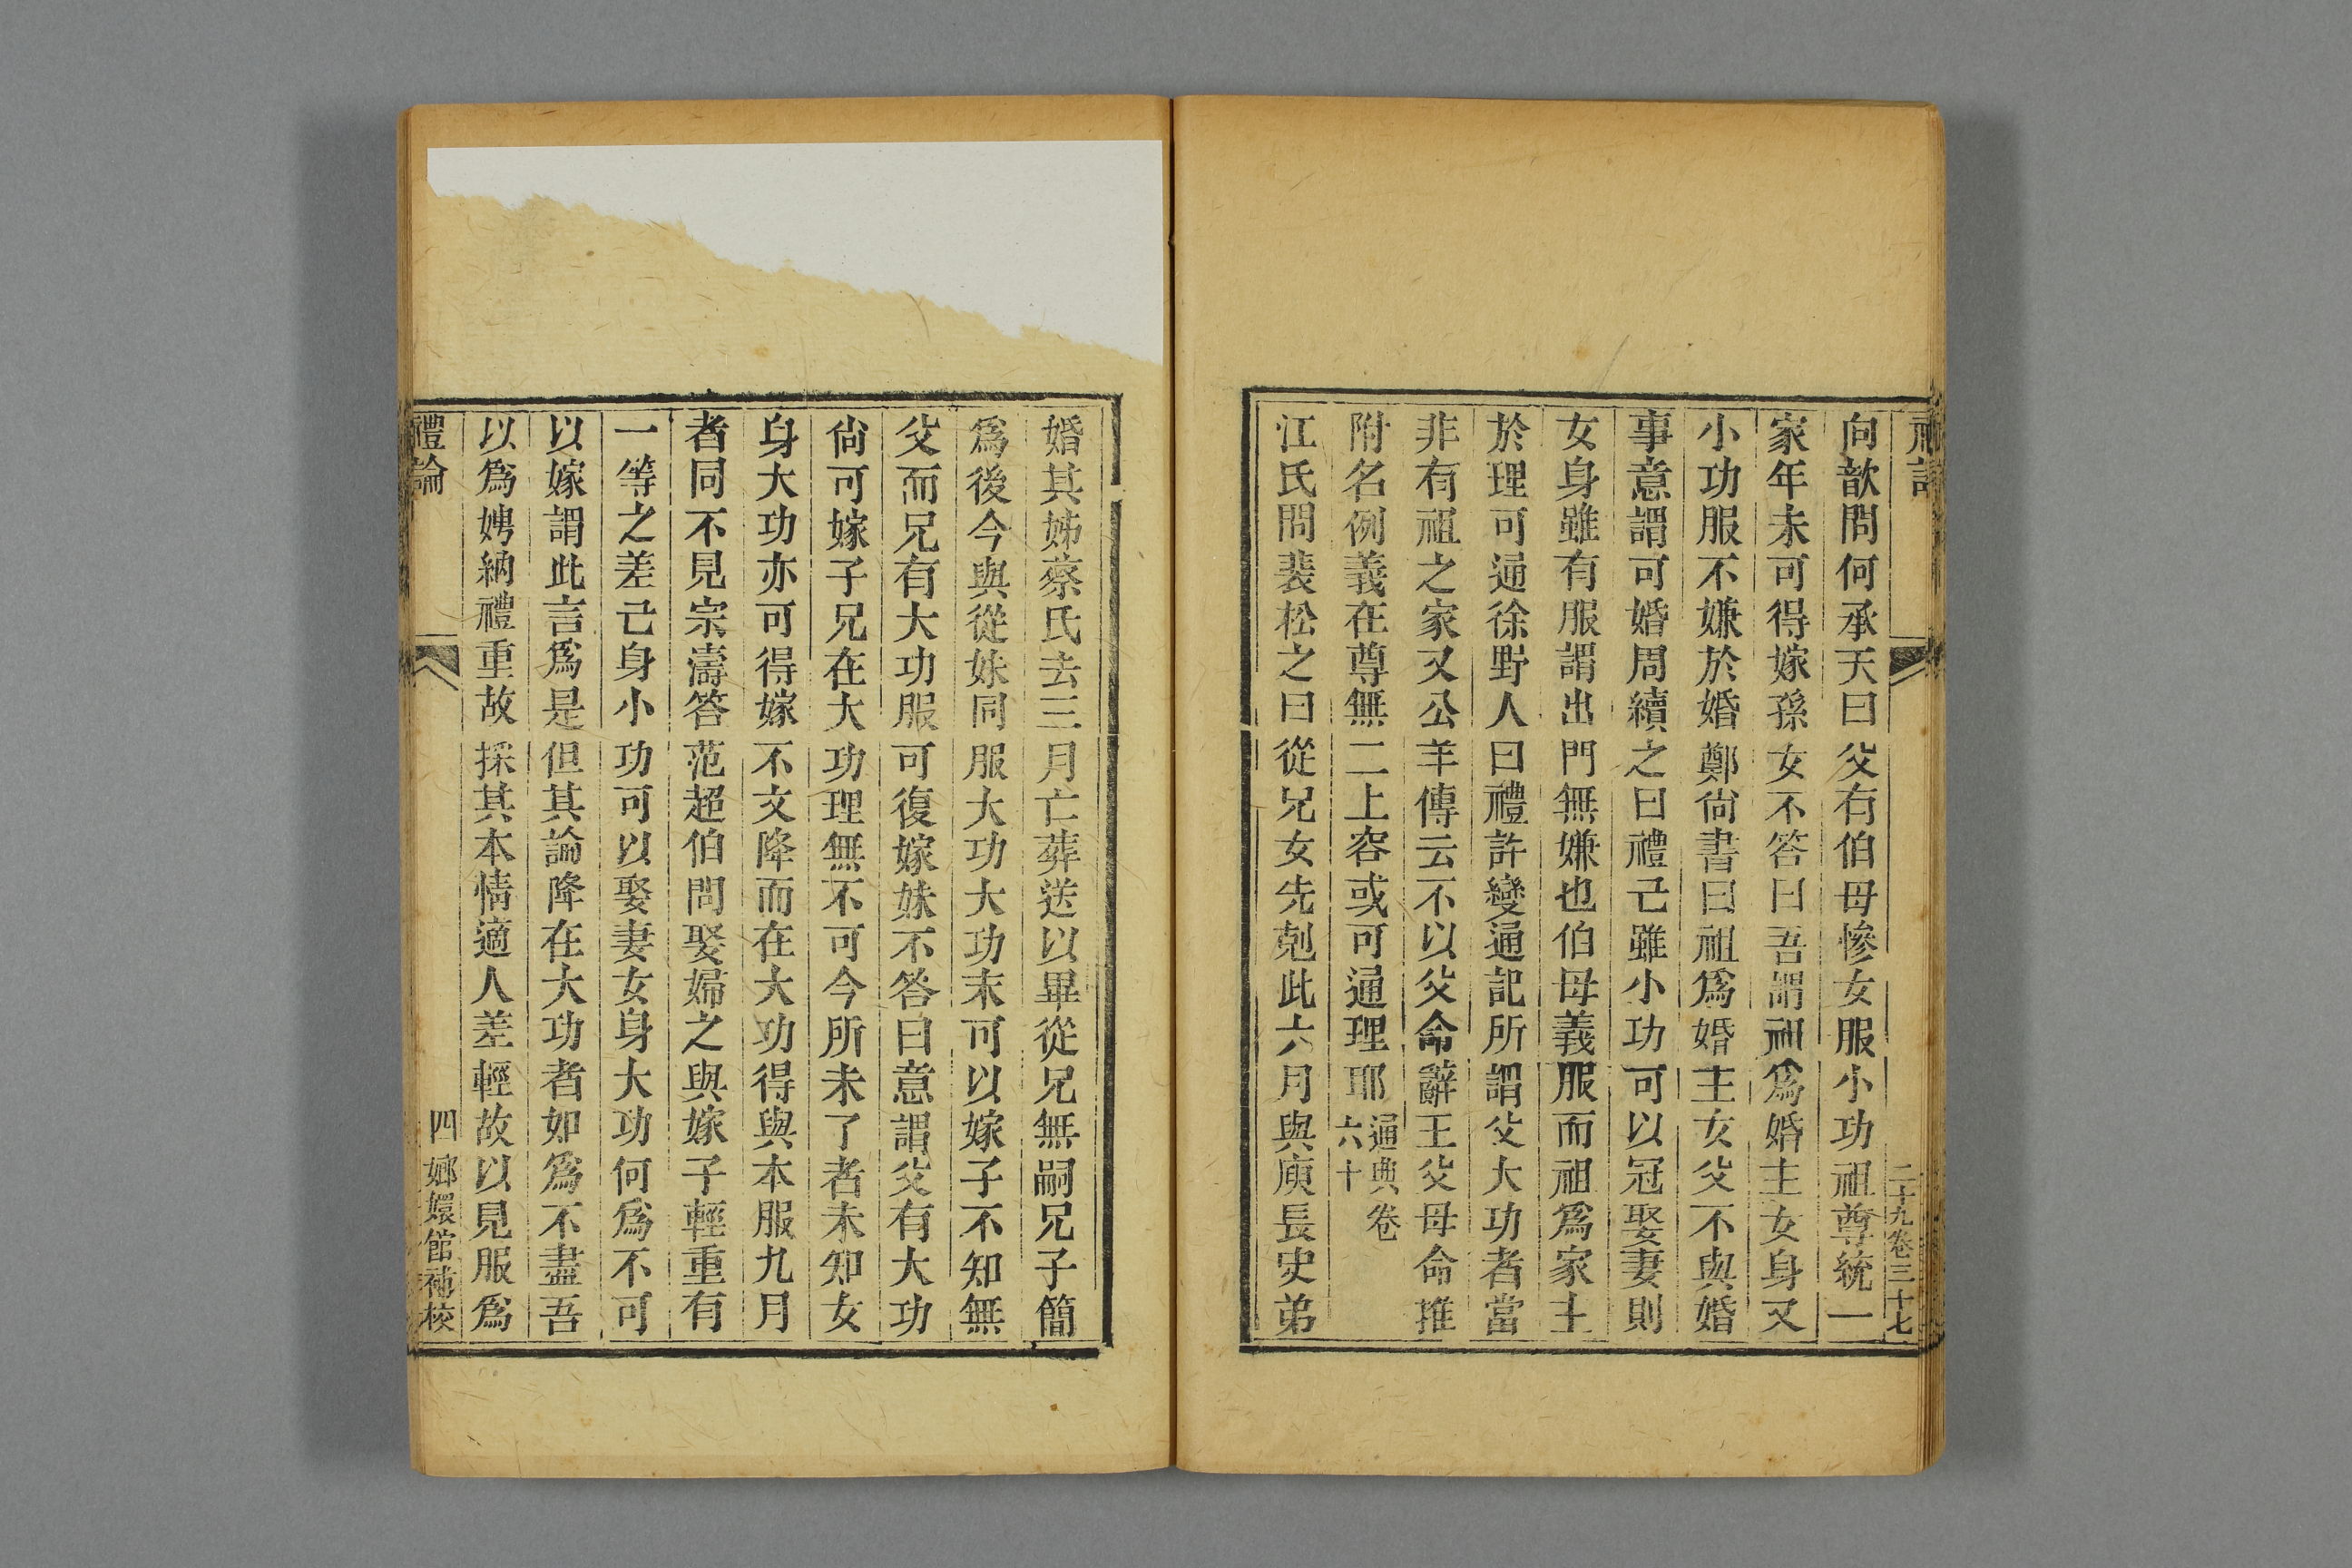 二十九卷三十七
向歆問何承天曰父有伯母慘女服小功祖尊統一
家年未可得嫁孫女不答曰吾謂祖爲婚主女身又
小功服不嫌於婚鄭尙書曰祖爲婚主女父不與婚
事意謂可婚周續之曰禮己雖小功可以冠娶妻則
女身雖有服謂出門無嫌也伯母義服而祖爲家主
於理可通徐野人曰禮許變通記所謂父大功者當
非有祖之家又公羊傳云不以父命辭王父母命推
附名例義在尊無二上容或可通理耶通典卷六十
江氏問裴松之曰從兄女先剋此六月與庾長史弟
婚其姊蔡氏去三月亡葬送以畢從兄無嗣兄子簡
爲後今與從妹同服大功大功末可以嫁子不知無
父而兄有大功服可復嫁妹不答曰意謂父有大功
尙可嫁子兄在大功理無不可今所未了者未知女
身大功亦可得嫁不文降而在大功得與本服九月
者同不見宗濤答范超伯問娶婦之與嫁子輕重有
一等之差己身小功可以娶妻女身大功何爲不可
以嫁謂此言爲是但其論降在大功者如爲不盡吾
以爲娉納禮重故採其本情適人差輕故以見服爲
禮論
四
嫏嬛館補校